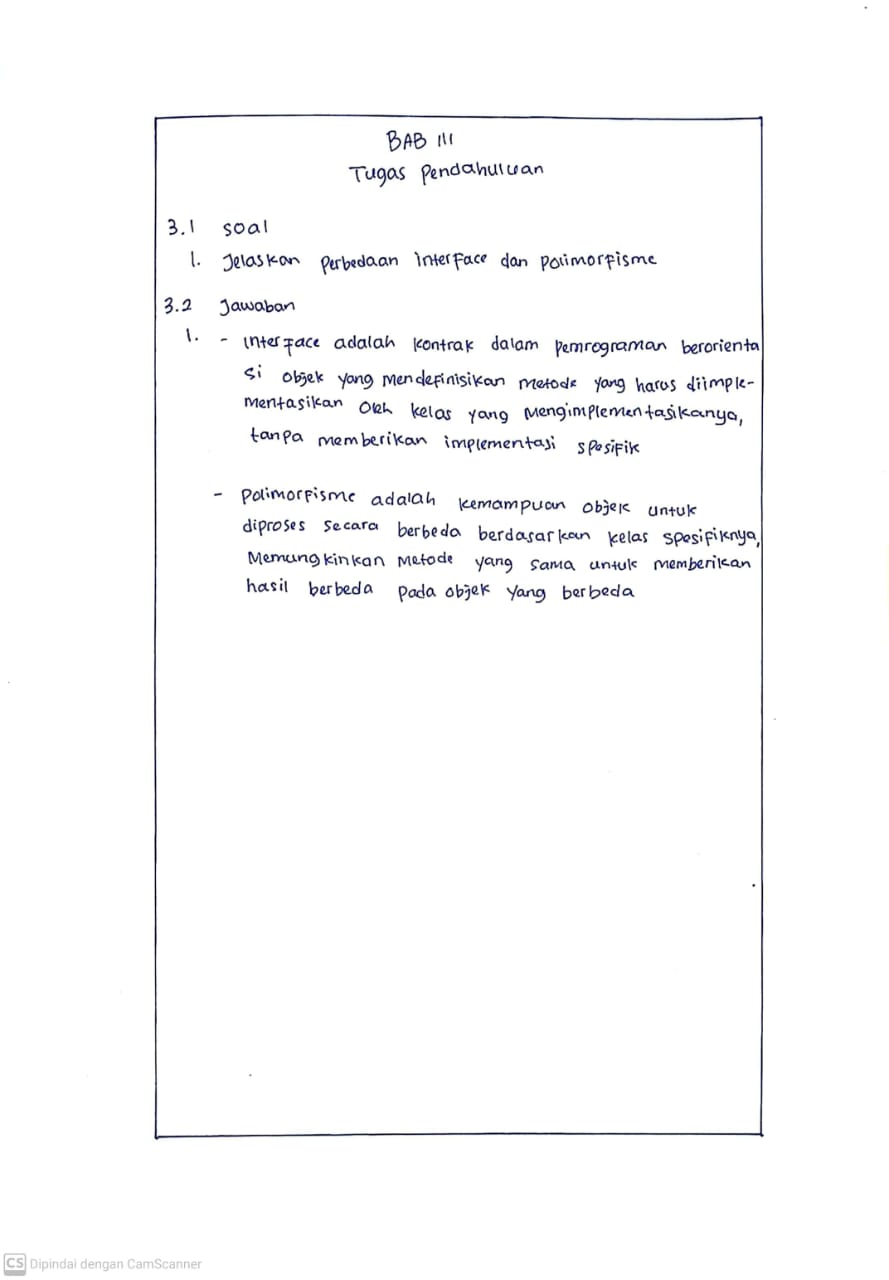 BAB III
Tugas Pendahuluan
3.1 Soal
1. Jelaskan Perbedaan interface dan polimorfisme
3.2 Jawaban
1. - interface adalah kontrak dalam pemrograman berorienta
si objek yang mendefinisikan metode yang harus diimple-
mentasikan oleh kelas yang mengimplementasikanya,
tanpa memberikan implementasi spesifik
- Polimorfisme adalah kemampuan objek untuk
diproses secara berbeda berdasarkan kelas spesifiknya,
Memungkinkan metode yang sama untuk memberikan
hasil berbeda pada objek yang berbeda
CS Dipindai dengan CamScanner